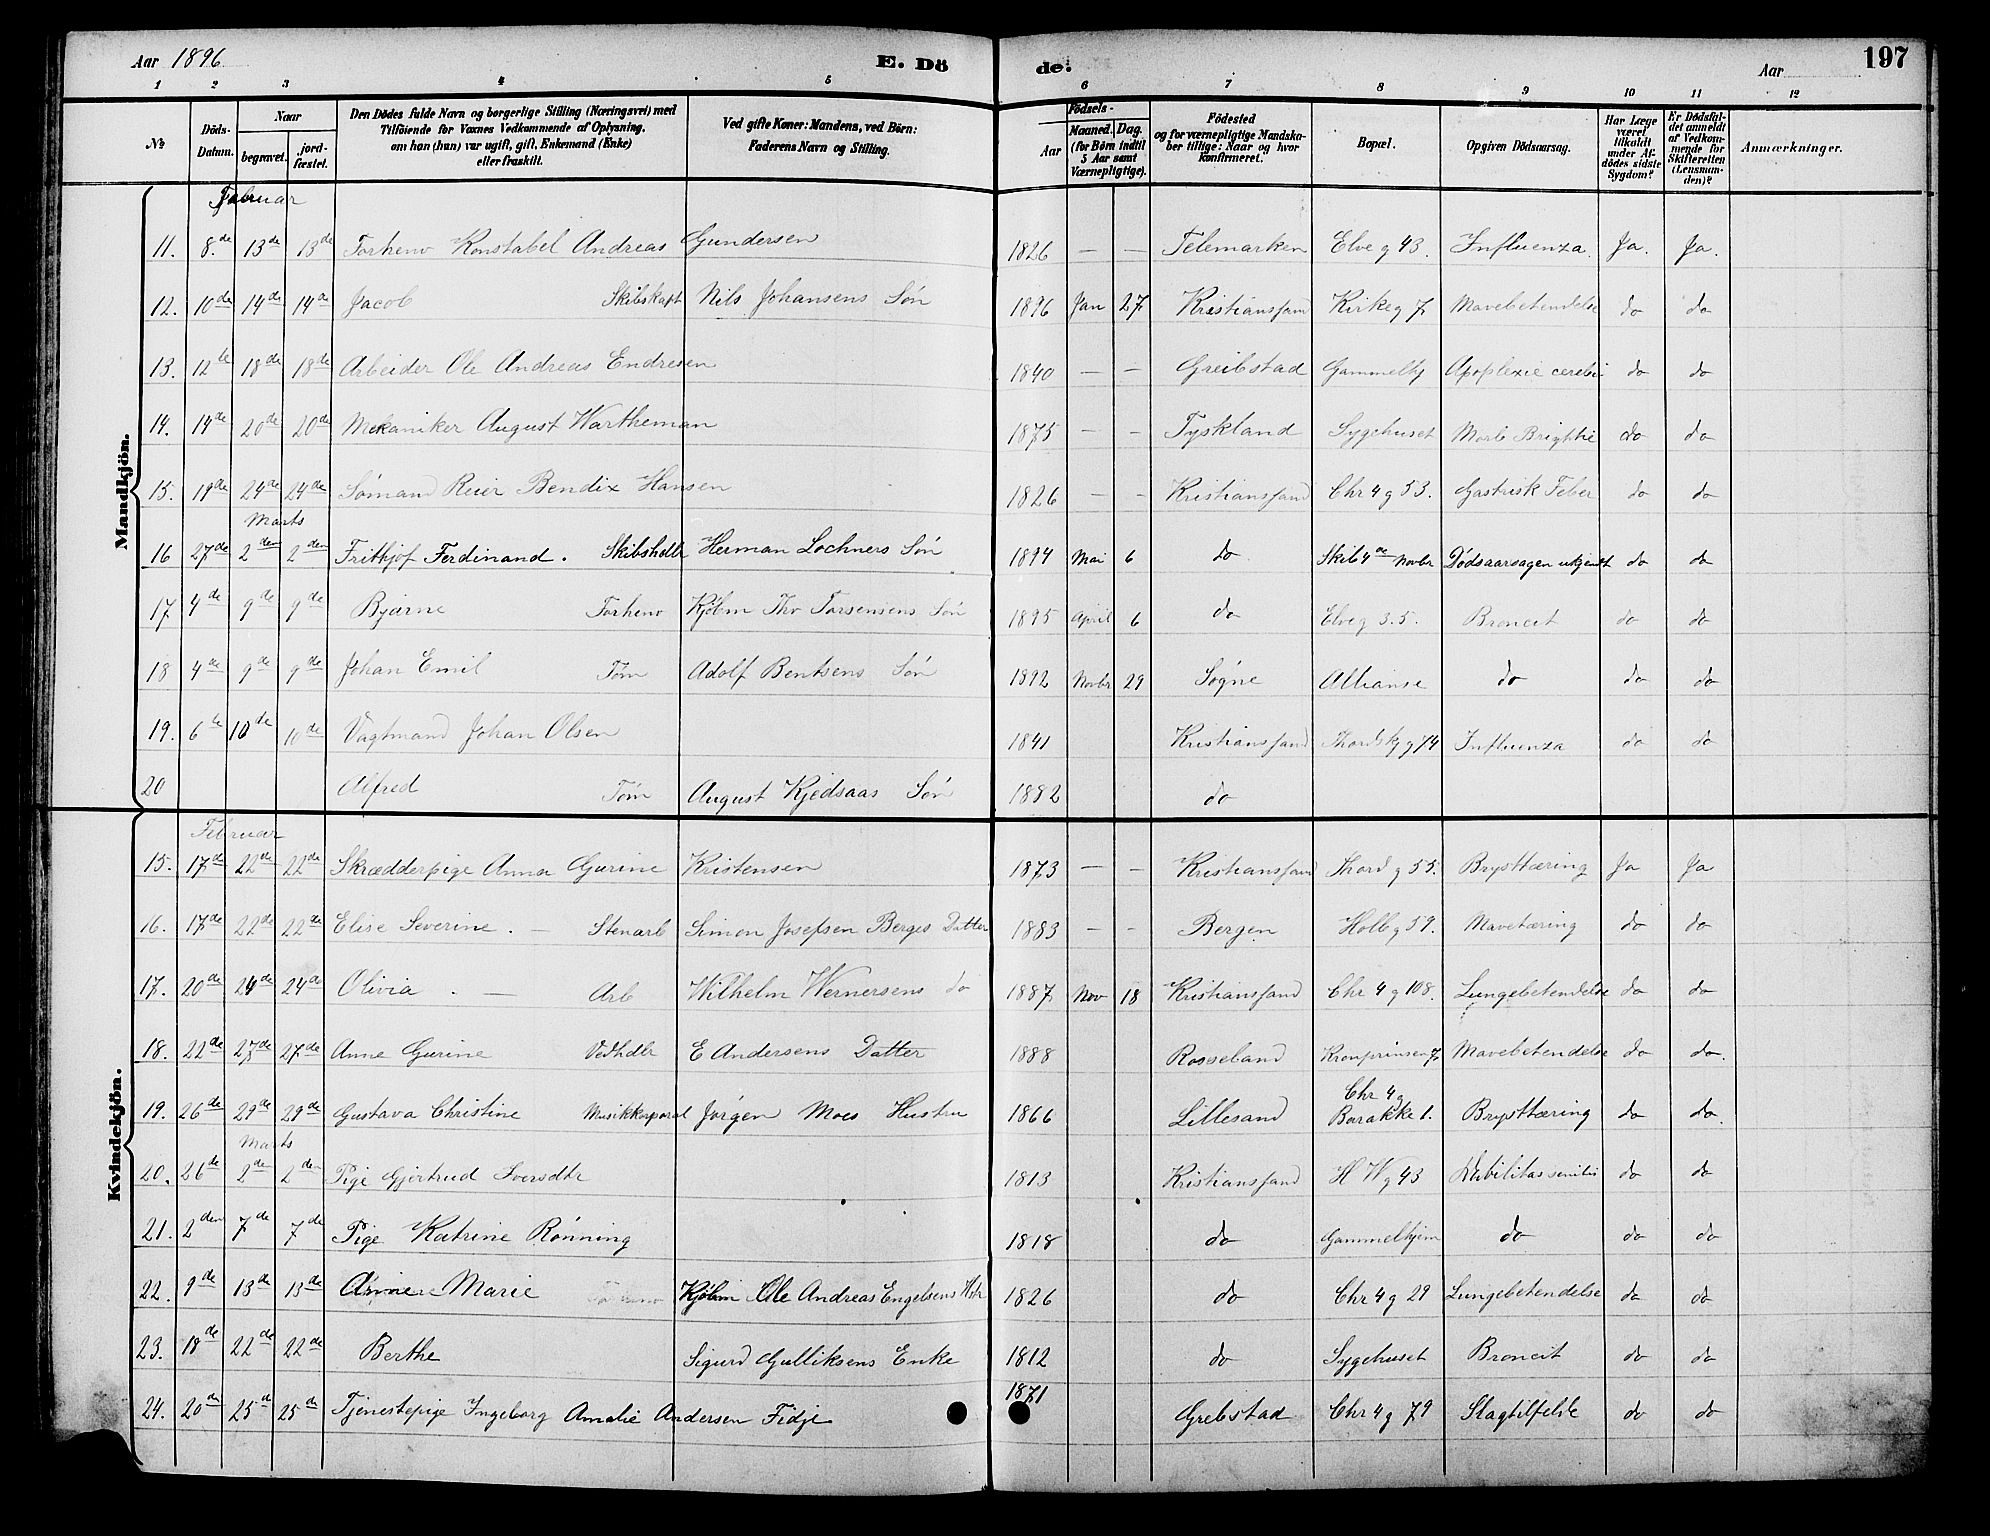 Aar 1896 E. Dö de. Aar 197
1 2 3 4 5 6 7 8 9 10 11 12
No Döds-Datum. Naar begravet. jordfæstet. Den Dödes fulde Navn og borgerlige Stilling (Næringsvei) med Tilföiende for Voxnes Vedkommende af Oplysning, om han (hun) var ugift, gift, Enkemand (Enke) eller fraskilt. Ved gifte Koner: Mandens, ved Börn: Faderens Navn og Stilling. Födsels- Aar Maaned. Dag. (for Börn indtil 5 Aar samt Værnepligtige). Födested og for værnepligtige Mandskaber tillige: Naar og hvor konfirmeret. Bopæl. Opgiven Dödsaarsag. Har Læge været tilkaldt under Afdödes sidste Sygdom? Er Dödsfaldet anmeldt af Vedkommende for Skifteretten (Lensmanden)? Anmærkninger.
Mandkjön.
Februar
11. 8.de 13de 13de Forhenv Konstabel Andreas Gundersen 1826 — — Telemarken Elveg 43. Influenza. Ja. Ja.
12. 10de 14de 14de Jacob Skibskapt Nils Johansens Søn 1896 Jan 27 Kristianssand Kirkeg 7 Mavebetendelse do do
13. 12te 18de 18de Arbeider Ole Andreas Endresen 1840 — — Greibstad Gammelhj Apoplexie cerebri do do
14. 14de 20de 20de Mekaniker August Wartheman 1875 — — Tyskland Sygehuset Morb Brigthie do do
15. 19de 24de 24de Sømand Reier Bendix Hansen 1826 — — Kristianssand Chr 4 g 53. Gastrisk Feber do do
Marts
16 27de 2den 2den Frithjof Ferdinand. Skibshdlr Herman Lochners Søn 1894 Mai 6 do Skib 4de Novbr Dödsaarsagen ukjendt do do
17 4de 9de 9de Bjarne Forhenv Kjøbm Thv Torsensens Søn 1895 April 6 do Elveg 35. Broncit do do
18 4de 9de 9de Johan Emil Tøm Adolf Bentsens Søn 1892 Novbr 29 Søgne Allianse do do do
19. 6te 10de 10de Vagtmand Johan Olsen 1841 Kristianssand Thordskg 74 Influenza do do
20 Alfred Tøm August Kjedsaas Søn 1882 do
Kvindekjön.
Februar
15. 17de 22de 22de Skrædderpige Anna Gurine Kristensen 1873 — — Kristianssand Thord g 55. Brysttæring Ja Ja
16. 17de 22de 22de Elise Severine. — Stenarb Simon Josefsen Berges Datter 1883 — — Bergen Holbg 59. Mavetæring do do
17. 20de 24de 24de Olivia. — Arb Wilhelm Wernersens do 1887 Nov 18 Kristianssand Chr 4 g 108. Lungebetendelse do do
18. 22de 27de 27de Anne Gurine Vedhdlr E Andersens Datter 1888 Rosseland Kronprinsen 7 Mavebetendelse do do.
19. 26de 29de 29de Gustava Christine Musikkorporal Jørgen Moes Hustru 1866 Lillesand Chr 4 g Barakke 1. Brysttæring do do.
Marts
20. 26de 2den 2den Pige Gjertrud Iversdtr 1813 Kristianssand H W g 43 Debilitas senilis do do
21. 2den 7de 7de Pige Katrine Rønning 1818 do Gammelhjem do do do
22. 9de 13de 13de Anne Marie Forhenv Kjøbm Ole Andreas Engelsens Hstr 1826 do Chr 4 g 29 Lungebetendelse do do
23. 18de 22de 22de Berthe Sigurd Gulliksens Enke 1812 do Sygehuset Broncit do do
24. 20de 25de 25de Tjenestepige Ingeborg Amalie Andersen Fidje 1871 Grebstad Chr 4 g 79 Slagtilfelde do do